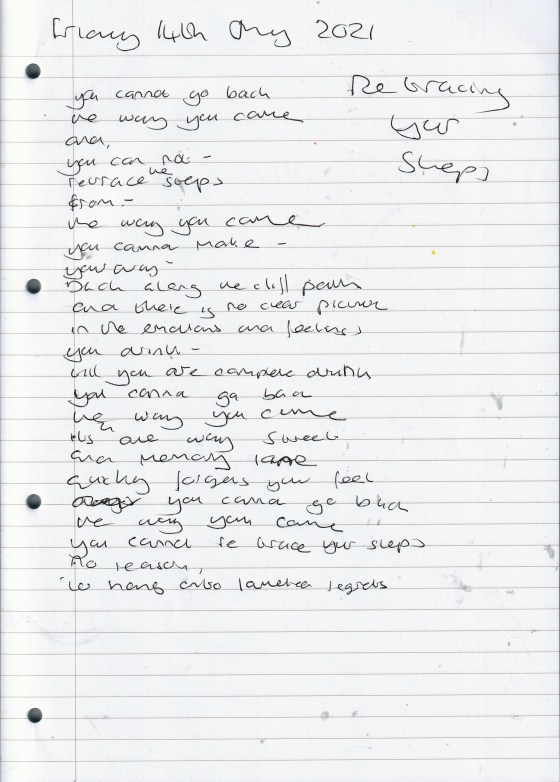 Friday 14th May 2021
Retracing
your
Steps
you cannot go back
the way you came
and,
you can not -
retrace the steps
from -
the way you came
you cannot make -
your way -
Back along the cliff path
and there is no clear picture
in the emotions and feelings
you drink -
till you are complete drunk
you cannot go back
the way you came
its a one way street
and memory lane
quickly forgets your feet
you cannot go back
the way you came
you cannot re trace your steps
no reason,
to hang onto regrets